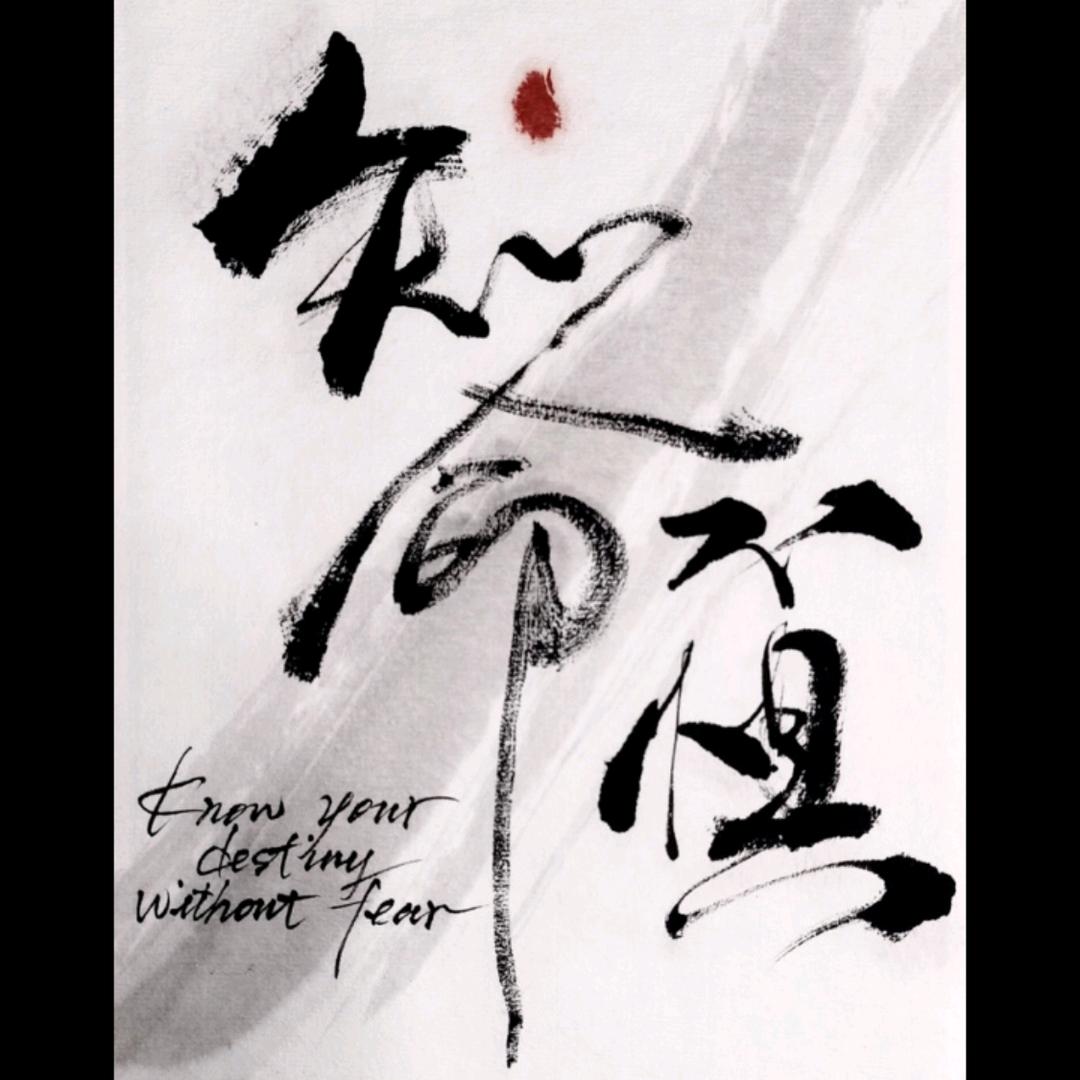 知命
不惧
Know your
destiny
without fear